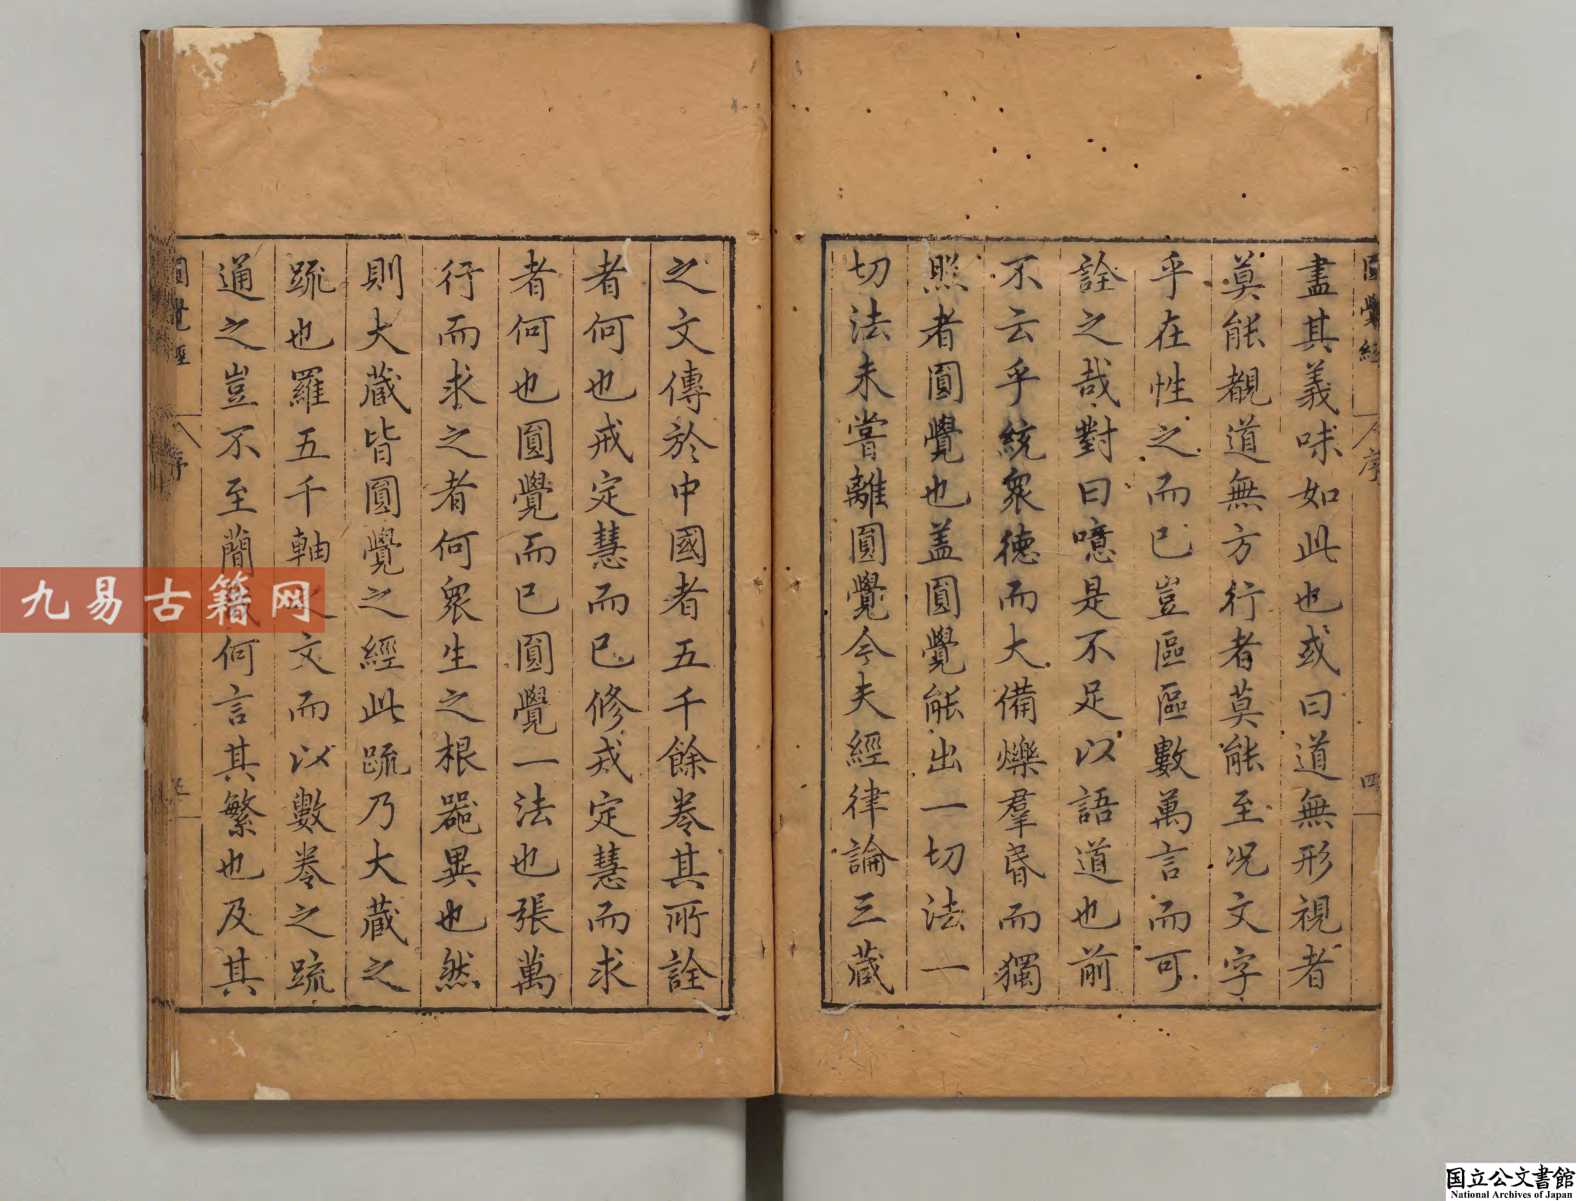 圓覺經 序 四
盡其義味如此也或曰道無形視者
莫能覩道無方行者莫能至況文字
乎在性之而已豈區區數萬言而可
詮之哉對曰噫是不足以語道也前
不云乎統衆德而大備爍羣昏而獨
照者圓覺也盖圓覺能出一切法一
切法未嘗離圓覺今夫經律論三蔵
之文傳於中國者五千餘卷其所詮
者何也戒定慧而已修戎定慧而求
者何也圓覺而已圓覺一法也張萬
行而求之者何衆生之根器異也然
則大蔵皆圓覺之經此疏乃大蔵之
疏也羅五千軸文而以數卷之疏
通之豈不至蕑何言其繁也及其
圓覺經 序
九易古籍网
国立公文書館
National Archives of Japan